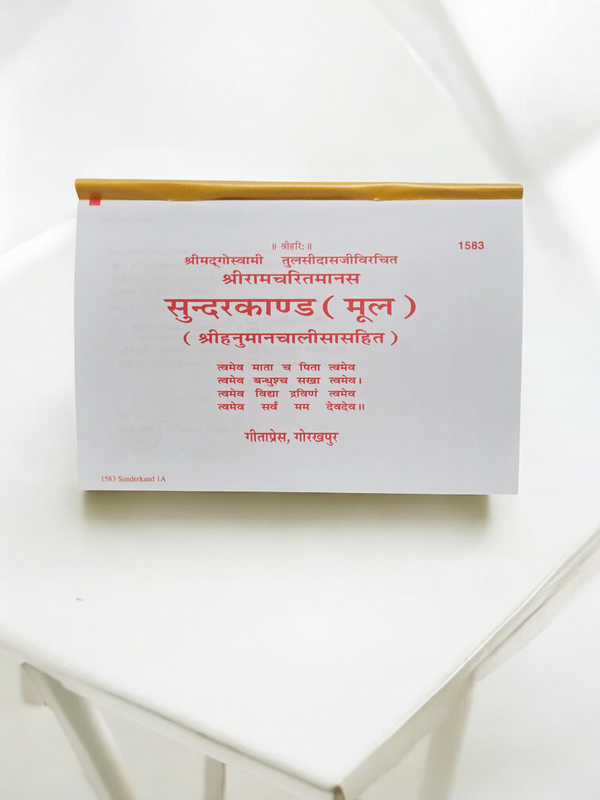 ॥ श्रीहरि: ॥
1583
श्रीमद्गोस्वामी तुलसीदासजीविरचित
श्रीरामचरितमानस
सुन्दरकाण्ड ( मूल )
( श्रीहनुमानचालीसासहित )
त्वमेव माता च पिता त्वमेव
त्वमेव बन्धुश्च सखा त्वमेव।
त्वमेव विद्या द्रविणं त्वमेव
त्वमेव सर्वं मम देवदेव॥
गीताप्रेस, गोरखपुर
1583 Sunderkand 1A